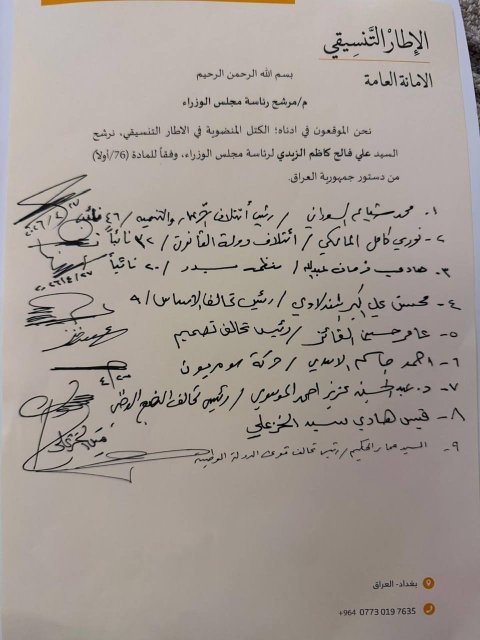 الإطار التَّنسِيقي
الامانة العامة
بسم الله الرحمن الرحيم
م/مرشح رئاسة مجلس الوزراء
نحن الموقعون في ادناه؛ الكتل المنضوية في الاطار التنسيقي، نرشح
السيد علي فالح كاظم الزيدي لرئاسة مجلس الوزراء، وفقاً للمادة (76/أولاً)
من دستور جمهورية العراق.
١- محمد شياع السوداني / رئيس ائتلاف الإعمار والتنمية / ٤٦ نائب
٢- نوري كامل المالكي / ائتلاف دولة القانون / ٣٢ نائباً
٣- هادي فرحان عبدالله / منظمة بدر / ٢٠ نائباً
٢٠٢٦/٤/٢٧
٤- محسن علي اكبر المندلاوي / رئيس تحالف الاساس / ٩
٥- عامر حسين الفائز / رئيس تحالف تصميم
٦- احمد جاسم الاسدي / حركة سومريون
٧- د. عبدالحسين عزيز احمد الموسوي / رئيس تحالف النهج الوطني
٨- قيس هادي سيد الخزعلي
٩- السيد عمار الحكيم / رئيس تحالف قوى الدولة الوطنية
بغداد- العراق
+964 0773 019 7635